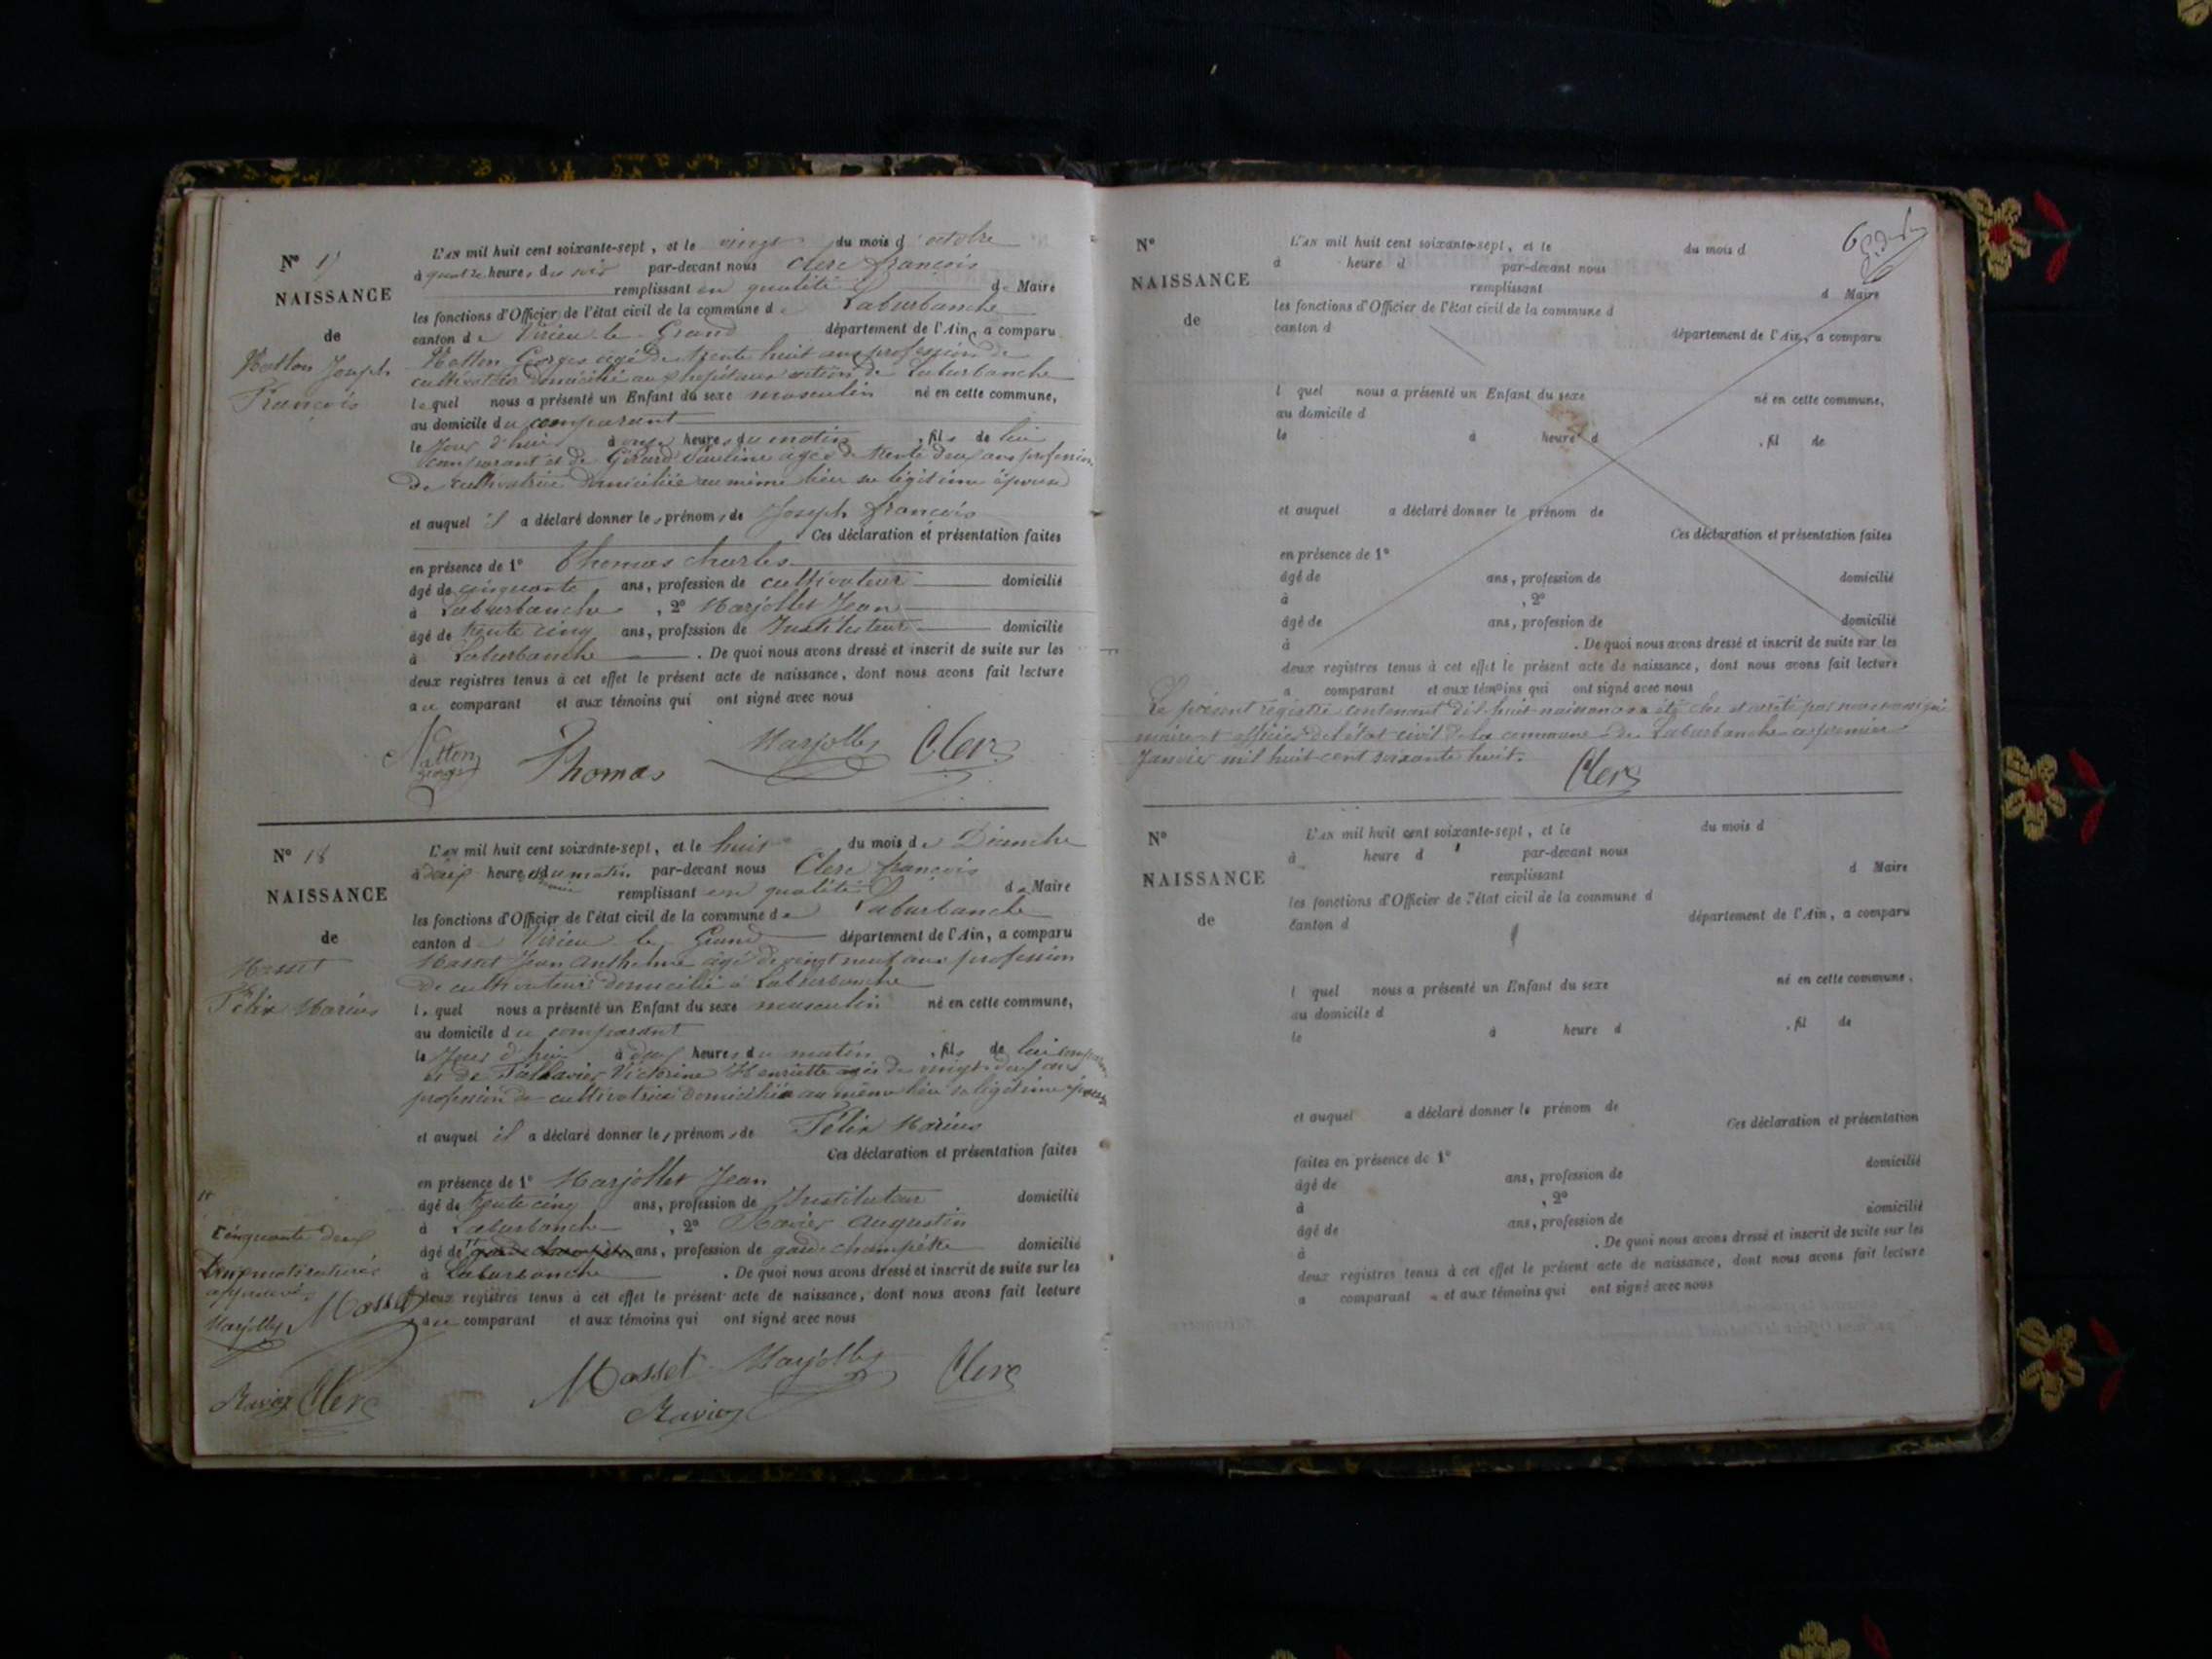 N° 17
NAISSANCE
de
Joseph
François
L'AN mil huit cent soixante-sept, et le vingt du mois d'octobre
à quatre heures du soir par-devant nous Clerc françois
remplissant en qualité de Maire
les fonctions d'Officier de l'état civil de la commune de Laburbanche
canton de Virieu le Grand département de l'Ain, a comparu
Georges âgé de trente huit ans profession de
cultivateur domicilié aux hopitaux section de Laburbanche
lequel nous a présenté un Enfant du sexe masculin né en cette commune,
au domicile du comparant
le Jour d'hui à onze heures du matin, fils de lui
comparant et de Girard Pauline âgée de trente deux ans profession
de cultivatrice domiciliée au même lieu sa légitime épouse
et auquel il a déclaré donner les prénoms de Joseph françois
Ces déclaration et présentation faites
en présence de 1° Thomas Charles
âgé de cinquante ans, profession de cultivateur domicilié
à Laburbanche, 2° Marjollet Jean
âgé de trente cinq ans, profession de Instituteur domicilié
à Laburbanche. De quoi nous avons dressé et inscrit de suite sur les
deux registres tenus à cet effet le présent acte de naissance, dont nous avons fait lecture
au comparant et aux témoins qui ont signé avec nous
Thomas Marjollet Clerc
N° 18
NAISSANCE
de
Masset
Félix Marius
L'AN mil huit cent soixante-sept, et le huit du mois de Décembre
à deux heures du matin par-devant nous Clerc françois
remplissant en qualité de Maire
les fonctions d'Officier de l'état civil de la commune de Laburbanche
canton de Virieu le Grand département de l'Ain, a comparu
Masset Jean Anthelme âgé de vingt neuf ans profession
de cultivateur domicilié à Laburbanche
lequel nous a présenté un Enfant du sexe masculin né en cette commune,
au domicile du comparant
le Jour d'hui à deux heures du matin, fils de lui comparant
et de Victorine Henriette agée de vingt deux ans
profession de cultivatrice domiciliée au même lieu sa légitime épouse
et auquel il a déclaré donner les prénoms de Félix Marius
Ces déclaration et présentation faites
en présence de 1° Marjollet Jean
âgé de trente cinq ans, profession de Instituteur domicilié
à Laburbanche, 2° Ravier Augustin
âgé de garde champêtre ans, profession de garde champêtre domicilié
à Laburbanche. De quoi nous avons dressé et inscrit de suite sur les
deux registres tenus à cet effet le présent acte de naissance, dont nous avons fait lecture
au comparant et aux témoins qui ont signé avec nous
Cinquante deux
Deux mots raturés
approuvés
Marjollet Masset
Ravier Clerc
Masset Marjollet Clerc
Ravier
6
N°
NAISSANCE
de
L'AN mil huit cent soixante-sept, et le du mois d
à heure d par-devant nous
remplissant d Maire
les fonctions d'Officier de l'état civil de la commune d
canton d département de l'Ain, a comparu
l quel nous a présenté un Enfant du sexe né en cette commune,
au domicile d
le à heure d , fil de
et auquel a déclaré donner le prénom de
Ces déclaration et présentation faites
en présence de 1°
âgé de ans, profession de domicilié
à , 2°
âgé de ans, profession de domicilié
à . De quoi nous avons dressé et inscrit de suite sur les
deux registres tenus à cet effet le présent acte de naissance, dont nous avons fait lecture
a comparant et aux témoins qui ont signé avec nous
Le présent registre contenant dix huit naissances a été clos et arrêté par nous soussigné
maire et officier de l'état civil de la commune de Laburbanche ce premier
Janvier mil huit cent soixante huit.
Clerc
N°
NAISSANCE
de
L'AN mil huit cent soixante-sept, et le du mois d
à heure d par-devant nous
remplissant d Maire
les fonctions d'Officier de l'état civil de la commune d
canton d département de l'Ain, a comparu
l quel nous a présenté un Enfant du sexe né en cette commune,
au domicile d
le à heure d , fil de
et auquel a déclaré donner le prénom de
Ces déclaration et présentation
faites en présence de 1°
âgé de ans, profession de domicilié
à , 2°
âgé de ans, profession de domicilié
à . De quoi nous avons dressé et inscrit de suite sur les
deux registres tenus à cet effet le présent acte de naissance, dont nous avons fait lecture
a comparant et aux témoins qui ont signé avec nous